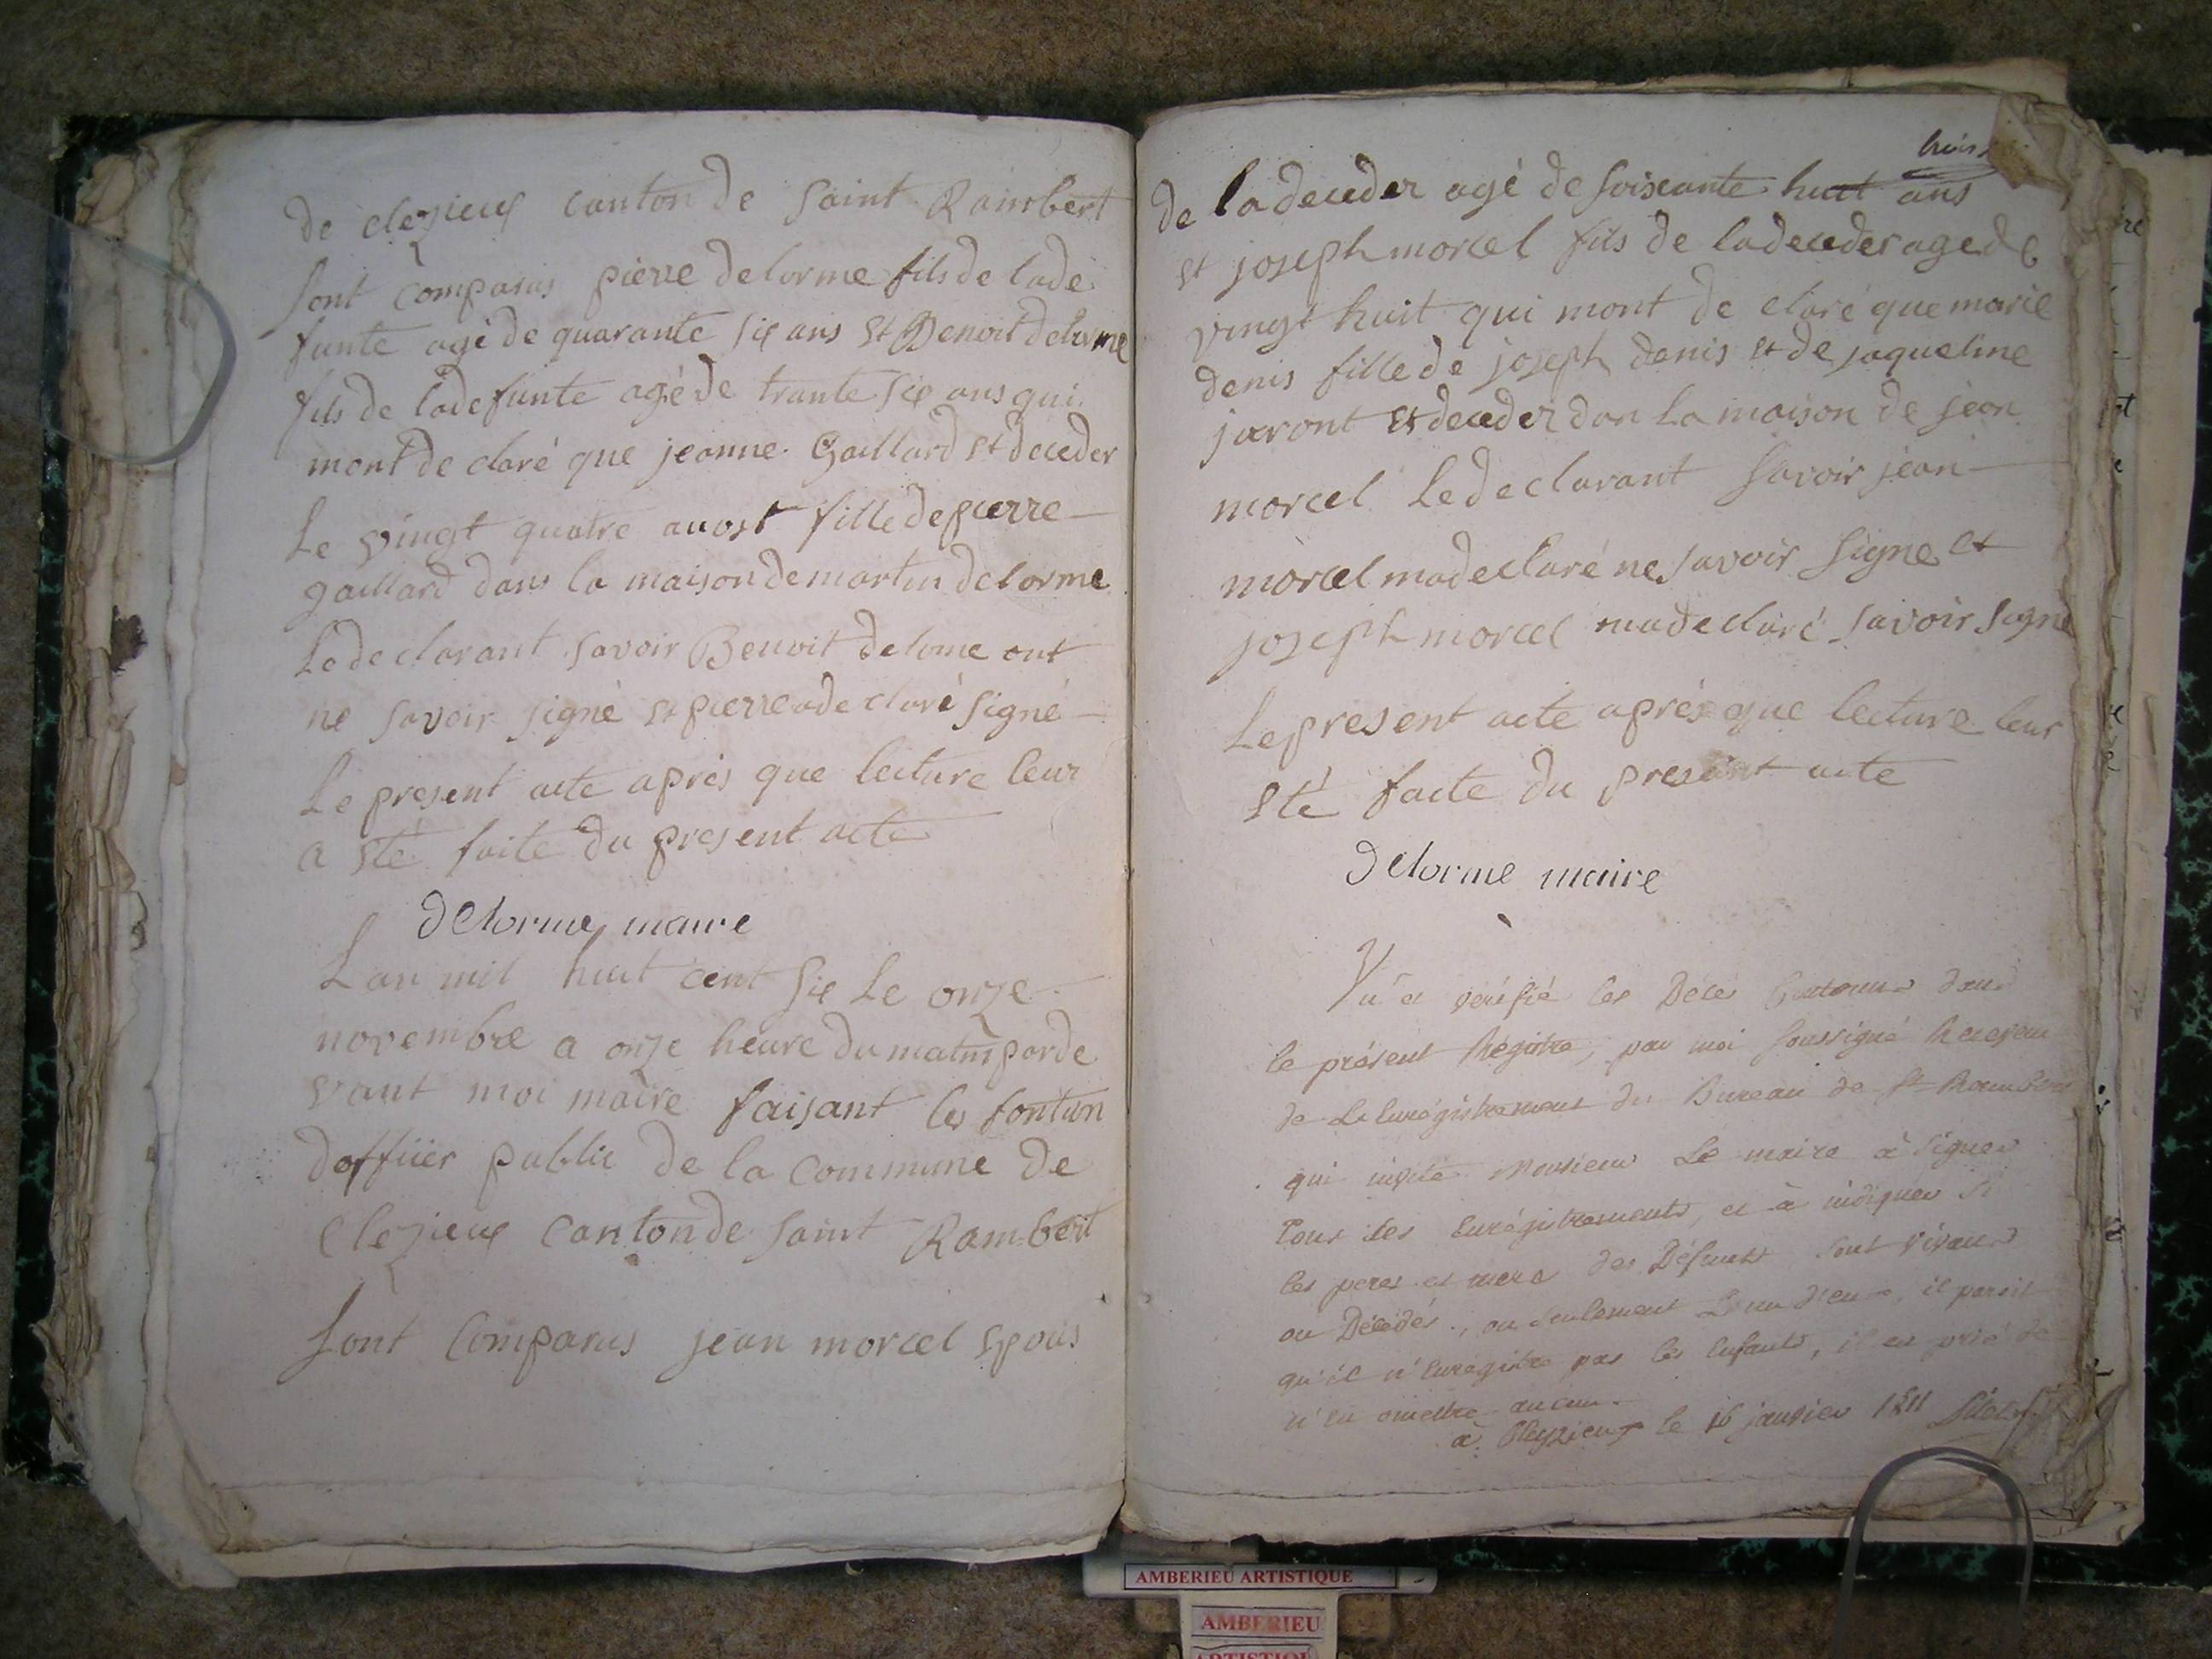 de clezieux canton de saint Rambert
sont comparus pierre delorme fils de lade
funte agé de quarante six ans et Benoit delorme
fils de lade funte agé de trante six ans qui
mont de claré que jeanne Gaillard et deceder
Le vingt quatre auost fille de pierre
gaillard dans la maison de martin delorme
Le de clarant savoir Benoit delome ont
ne savoir signé et pierre a de claré signé
Le present acte après que lecture leur
a eté faite du present acte
delorme maire
Lan mil huit cent six Le onze
novembre a onze heure du matin parde
vant moi maire faisant les fontion
doffiier public de la commune de
Clezieux Canton de saint Rambert
sont Comparus jean morcel epous
huis
de la deceder agé de soiscante huit ans
et joseph morcel fils de la deceder age de
vingt huit qui mont de claré que marie
denis fille de joseph denis et de jaqueline
juront et deceder dan la maison de jean
morcel Le declarant savoir jean
morcel ma declaré ne savoir signe et
joseph morcel ma declaré savoir signe
Le present acte après que lecture leur
eté faite du present acte
delorme maire
Vu et verifié les Décès Contenus dans
le présent Régistre, par moi soussigné Receveur
de L'Enrégistrement du Bureau de St Rambert
qui invite Monsieur Le maire à signer
tous les Enrégistrements, et à indiquer si
les peres et mere des Défunts sont vivans
ou Décédés, ou seulement L'un d'eux, il paroit
qu'il n'Enregistre pas les Enfants, il est prié de
n'en omettre aucun.
à Cleyzieux le 16 janvier 1811
AMBERIEU ARTISTIQUE
AMBERIEU
ARTISTIQUE